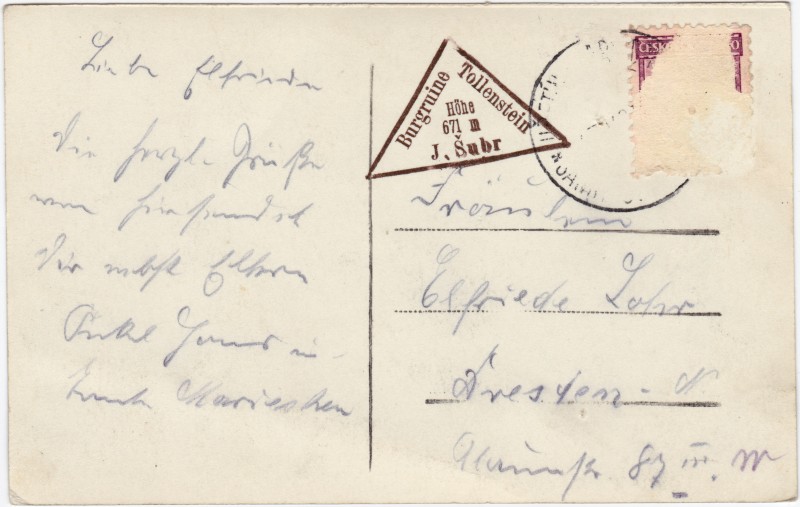 Liebe Elfriede
Die herzl. Grüße
von hier sendet
Dir nebst Eltern
Onkel Hans u.
Tante Mariechen
Burgruine Tollenstein
Höhe
671 m
J. Šubr
Fräulein
Elfriede Lohr
Dresden - N
Alaunstr 87 III.